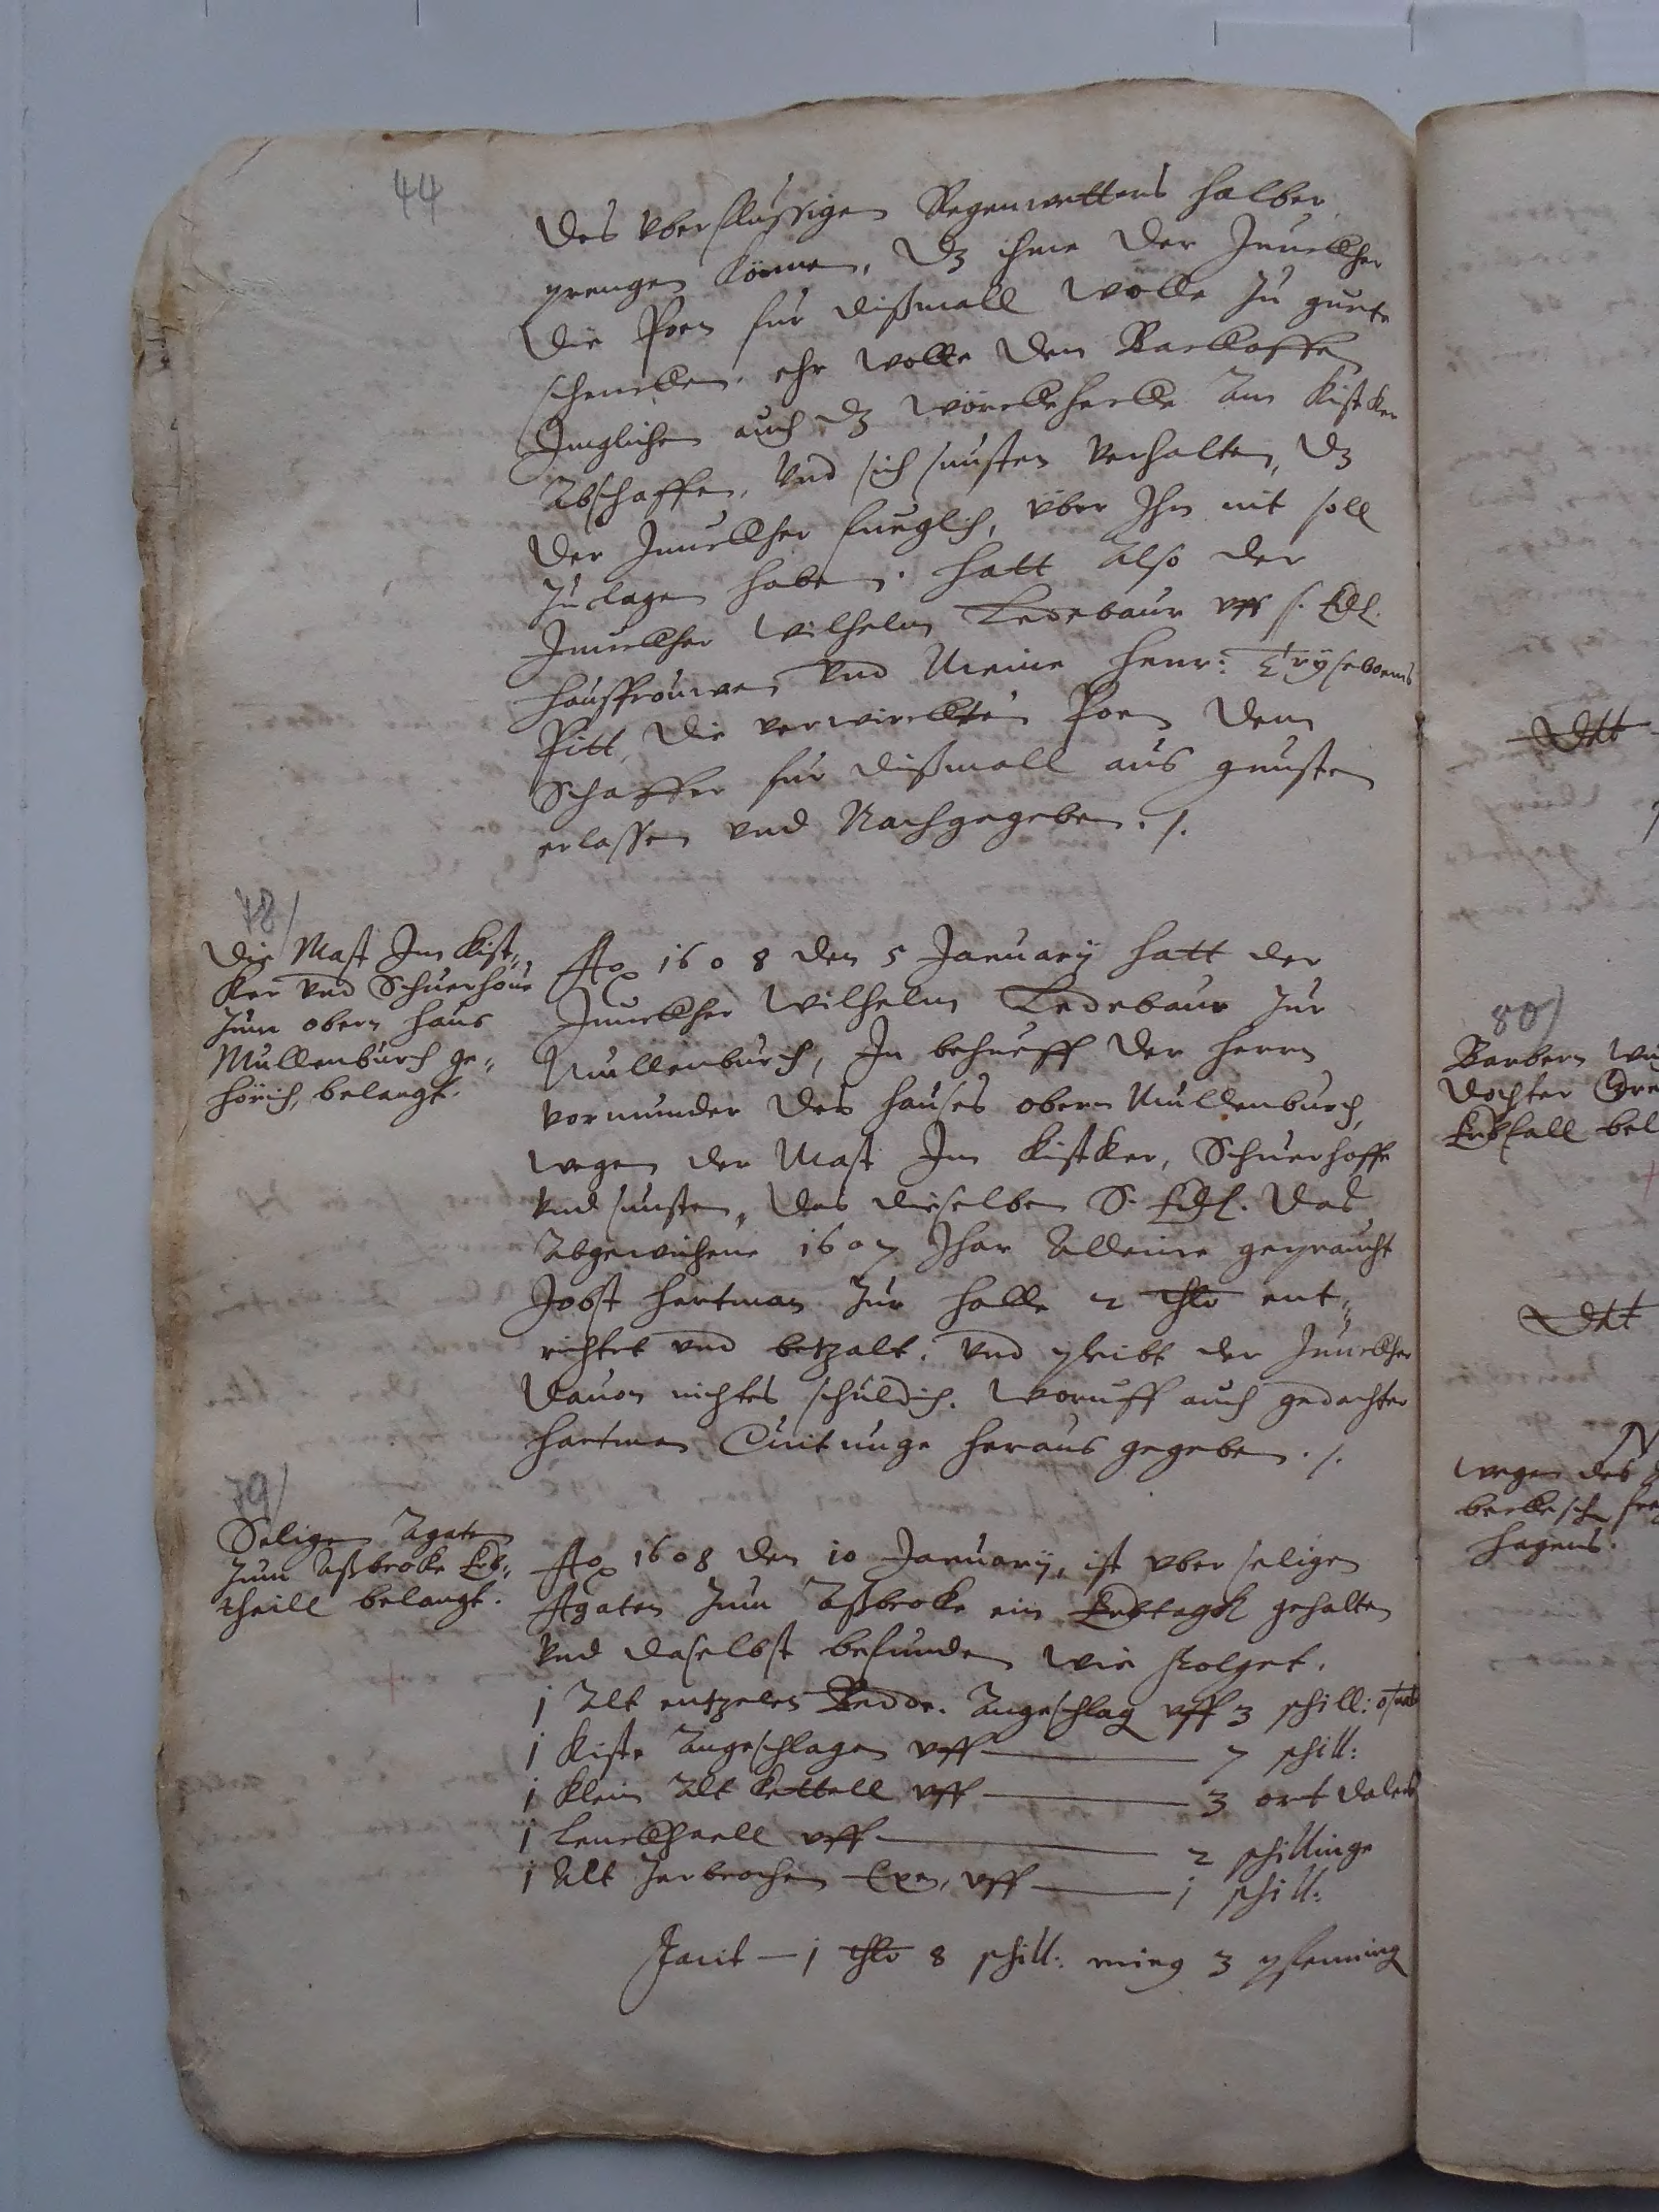 44
des vberflussigen Regenwetters halber
prengen könne, dz ihme der Junckher
die Poen für dißmall wölle zu gutte
schencken. ehr wolle den Backoffen
Jmglichen auch dz wörckehecke am Kistker
abschaffen, vnd sich sunsten verhalten, dz
der Junckher fueglich, vber Ihn nit soll
zuclagen haben. hatt also der
Junckher Wilhelm Ledebaur vff s. Edl.
haußfrouwen vnd Meine Henr:
Pitt, die verwirckten Poen dem
Schaffer für dißmall aus gunsten
erlassen vnd Nachgegeben ./.
78/
Die Mast Im Kist„
ker vnd Schuerhoue
zum obern haus
Mullenburch ge„
hörich, belangt.
Ao 1608 den 5 January hatt der
Junckher Wilhelm Ledebaur zur
Mullenburch, In behueff der herrn
vormunder des hauses obern Mullenburch,
wegen der Mast Im Kistker, Schuerhoffe
vnd sunsten, das dieselben S. Edl. das
abgewichene 1607 Jhar alleine gepraucht
Jobst Hartman zur Halle 2 thlr ent„
richtet vnd betzalt. vnd pleibt der Junckher
dauon nichtes schuldich. woruff auch gedachter
Hartman Quitunge heraus gegeben ./.
79/
Seligen Agaten
zum Aßbroke Erb„
theill belangt.
Ao 1608 den 10 January, ist vber seligen
Agaten zum Aßbroke ein Erbtagk gehalten
vnd daselbst befunden wie folget.
1 alt entzeles Bedde. angeschlag vff 3 schill:
1 Kiste angeschlagen vff — 7 schill:
1 klein alt kettell vff — 3 ort dalers
1 vff — 2 schillinge
1 alt zerbrochen vff — 1 schill:
Facit — 1 thlr 8 schill: 3 pfenning
Dtt
80/
Barbern
dochter
Erbfall bel
Dtt
wegen des
hagens.